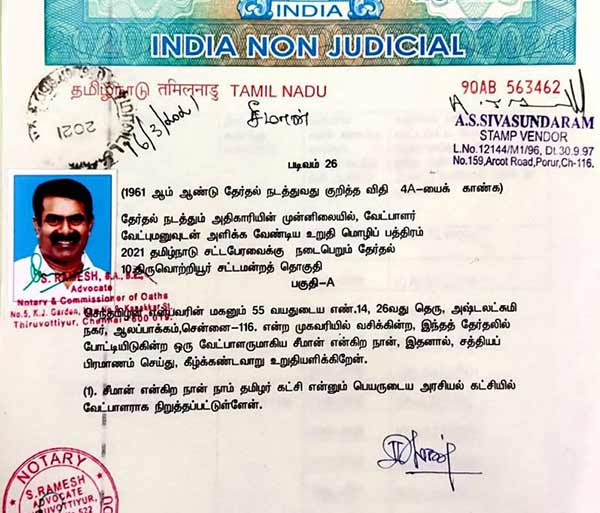 INDIA
INDIA NON JUDICIAL
தமிழ்நாடு तमिलनाडु TAMIL NADU
90AB 563462
16/3/2021
சீமான்
2021
A.S.SIVASUNDARAM
STAMP VENDOR
L.No.12144/M1/96, Dt.30.9.97
No.159,Arcot Road,Porur,Ch-116.
படிவம் 26
(1961 ஆம் ஆண்டு தேர்தல் நடத்துவது குறித்த விதி 4A-யைக் காண்க)
தேர்தல் நடத்தும் அதிகாரியின் முன்னிலையில், வேட்பாளர்
வேட்புமனுவுடன் அளிக்க வேண்டிய உறுதி மொழிப் பத்திரம்
2021 தமிழ்நாடு சட்டபேரவைக்கு நடைபெறும் தேர்தல்
10.திருவொற்றியூர் சட்டமன்றத் தொகுதி
பகுதி-A
S. RAMESH, B.A., B.L.,
Advocate
Notary & Commissioner of Oaths
No.5, K.J. Garden, St.
Thiruvottiyur, Chennai - 600 019.
செந்தமிழன் என்பவரின் மகனும் 55 வயதுடைய எண்.14, 26வது தெரு, அஷ்டலட்சுமி
நகர், ஆலப்பாக்கம்,சென்னை-116. என்ற முகவரியில் வசிக்கின்ற, இந்தத் தேர்தலில்
போட்டியிடுகின்ற ஒரு வேட்பாளருமாகிய சீமான் என்கிற நான், இதனால், சத்தியப்
பிரமாணம் செய்து, கீழ்க்கண்டவாறு உறுதியளிக்கிறேன்.
(1). சீமான் என்கிற நான் நாம் தமிழர் கட்சி என்னும் பெயருடைய அரசியல் கட்சியில்
வேட்பாளராக நிறுத்தப்பட்டுள்ளேன்.
சீமான்
NOTARY
S.RAMESH
ADVOCATE